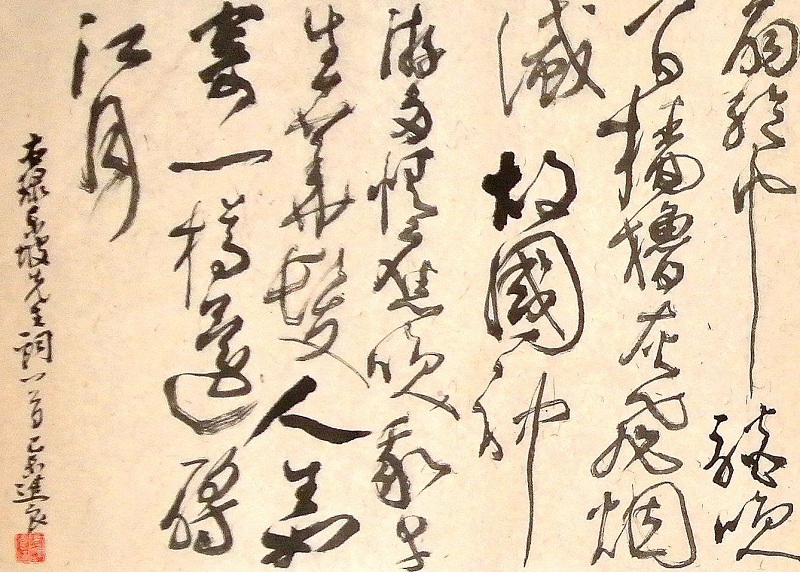 扇綸巾談咲
間檣櫓灰飛烟
滅故國神
游多情應咲我早
生華髮人生如
夢一樽還酹
江月
右録東坡先生詞一首